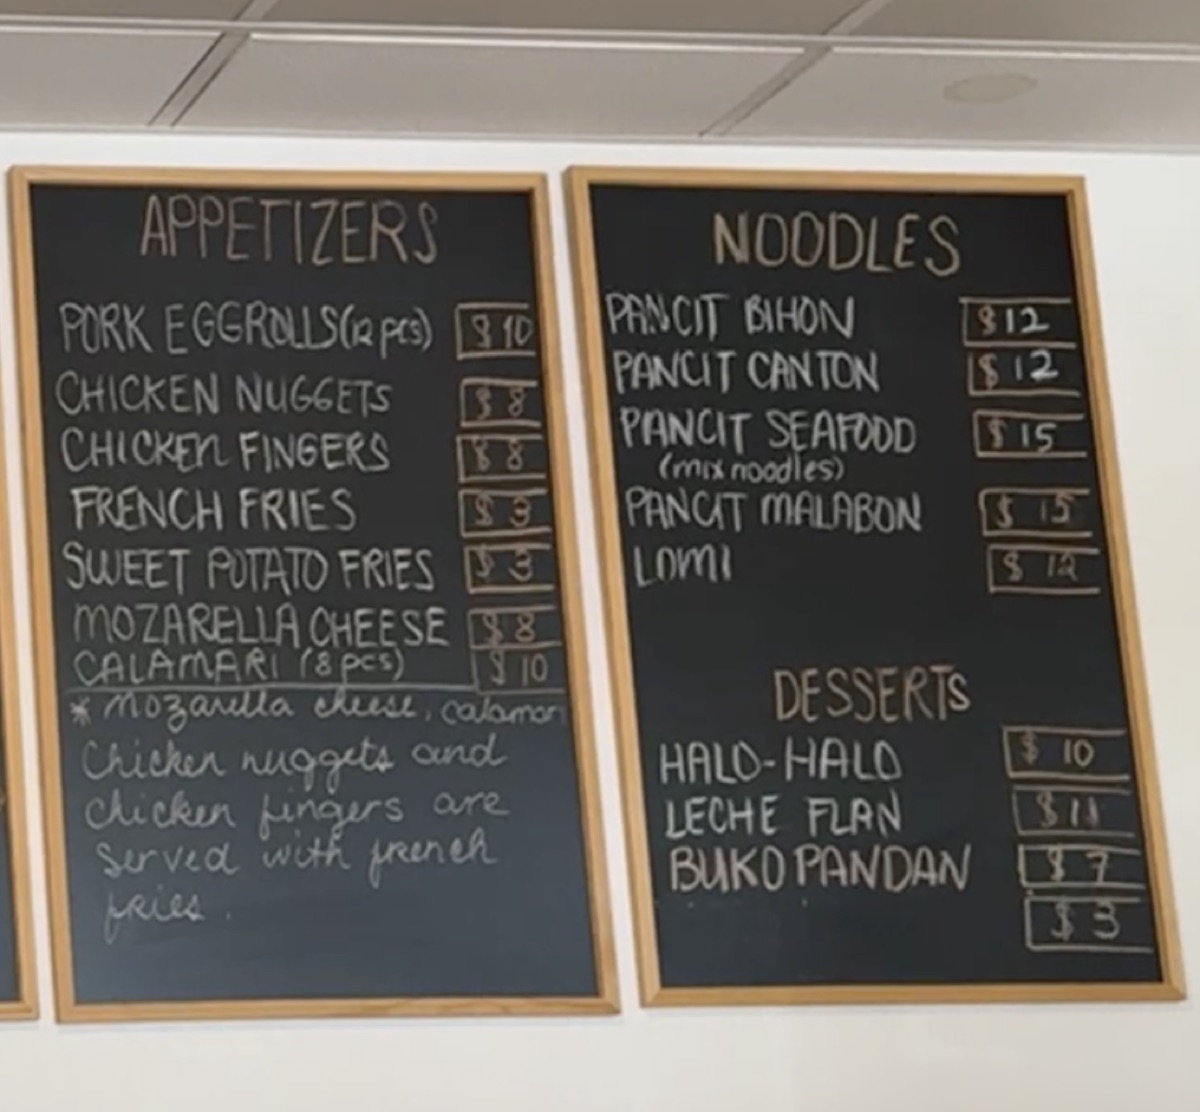 APPETIZERS
PORK EGGROLLS (12 pcs) $10
CHICKEN NUGGETS $8
CHICKEN FINGERS $8
FRENCH FRIES $3
SWEET POTATO FRIES $3
MOZARELLA CHEESE $8
CALAMARI (8 pcs) $10
* mozarella cheese, calamari
Chicken nuggets and
chicken fingers are
served with french
fries.
NOODLES
PANCIT BIHON $12
PANCIT CANTON $12
PANCIT SEAFOOD $15
(mix noodles)
PANCIT MALABON $15
LOMI $12
DESSERTS
HALO-HALO $10
LECHE FLAN $11
BUKO PANDAN $7
$3